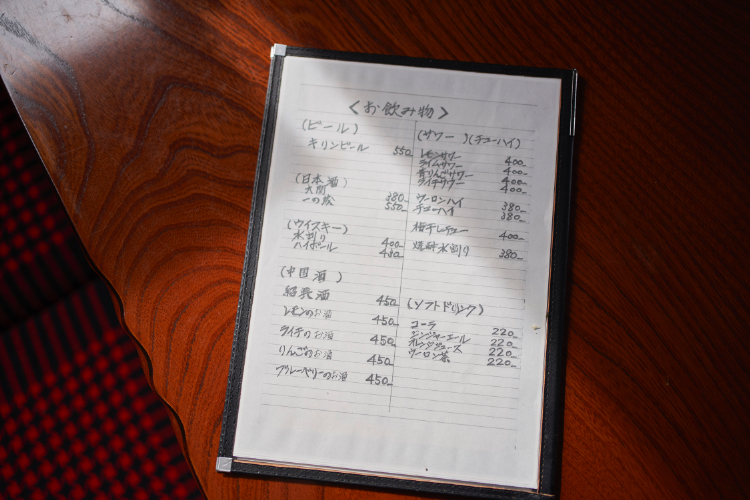 ＜お飲み物＞
(ビール)
キリンビール 550
(日本酒)
大関 380
一の蔵 550
(ウイスキー)
水割り 400
ハイボール 430
(中国酒)
紹興酒 450
レモンのお酒 450
ライチのお酒 450
りんごのお酒 450
ブルーベリーのお酒 450
(サワー)(チューハイ)
レモンサワー 400
ライムサワー 400
青りんごサワー 400
ライチサワー 400
ウーロンハイ 380
チューハイ 380
梅干しチュー 400
焼酎水割り 380
(ソフトドリンク)
コーラ 220
ジンジャーエール 220
オレンジジュース 220
ウーロン茶 220